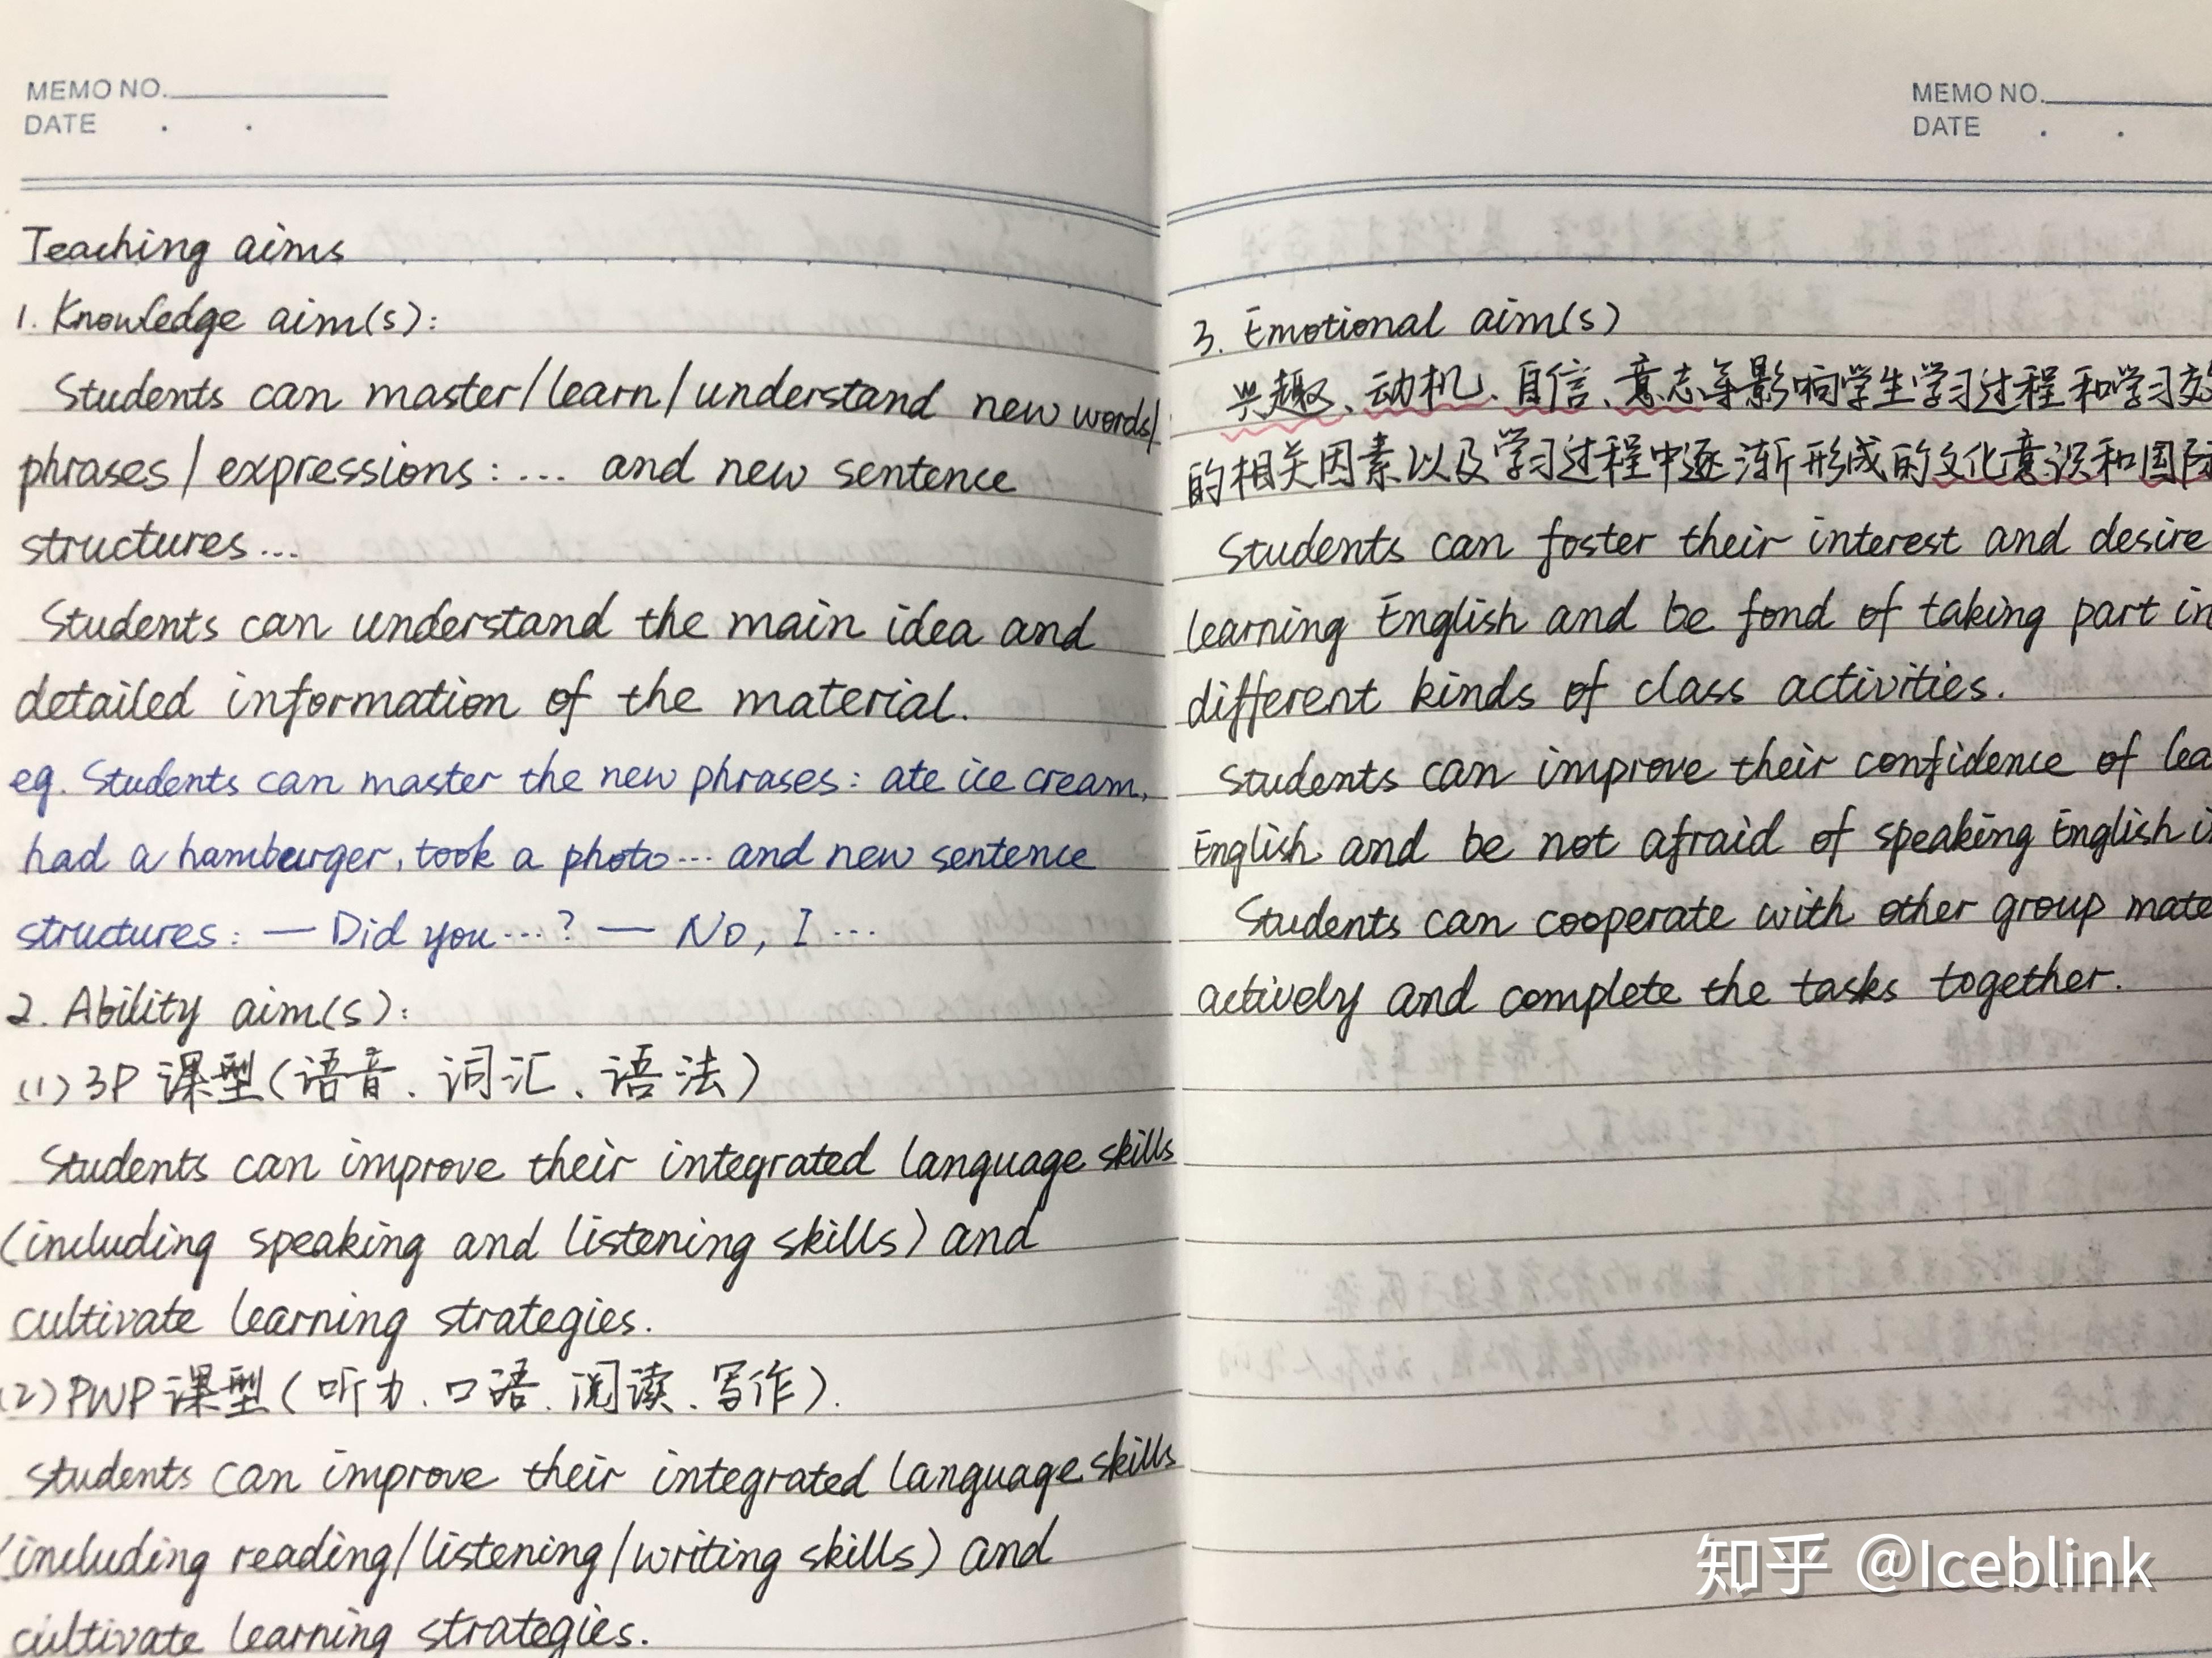 MEMO NO.
DATE . .
Teaching aims
1. Knowledge aim(s):
Students can master/learn/understand new words/
phrases/expressions: ... and new sentence
structures ...
Students can understand the main idea and
detailed information of the material.
eg. Students can master the new phrases: ate ice cream,
had a hamburger, took a photo ... and new sentence
structures: — Did you ...? — No, I ...
2. Ability aim(s):
(1) 3P 课型(语音、词汇、语法)
Students can improve their integrated language skills
(including speaking and listening skills) and
cultivate learning strategies.
(2) PWP 课型(听力、口语、阅读、写作).
Students can improve their integrated language skills
(including reading/listening/writing skills) and
cultivate learning strategies.
MEMO NO.
DATE . .
3. Emotional aim(s)
兴趣、动机、自信、意志等影响学生学习过程和学习
的相关因素以及学习过程中逐渐形成的文化意识和国际
Students can foster their interest and desire
learning English and be fond of taking part in
different kinds of class activities.
Students can improve their confidence of lea
English and be not afraid of speaking English i
Students can cooperate with other group mate
actively and complete the tasks together.
知乎 @Iceblink